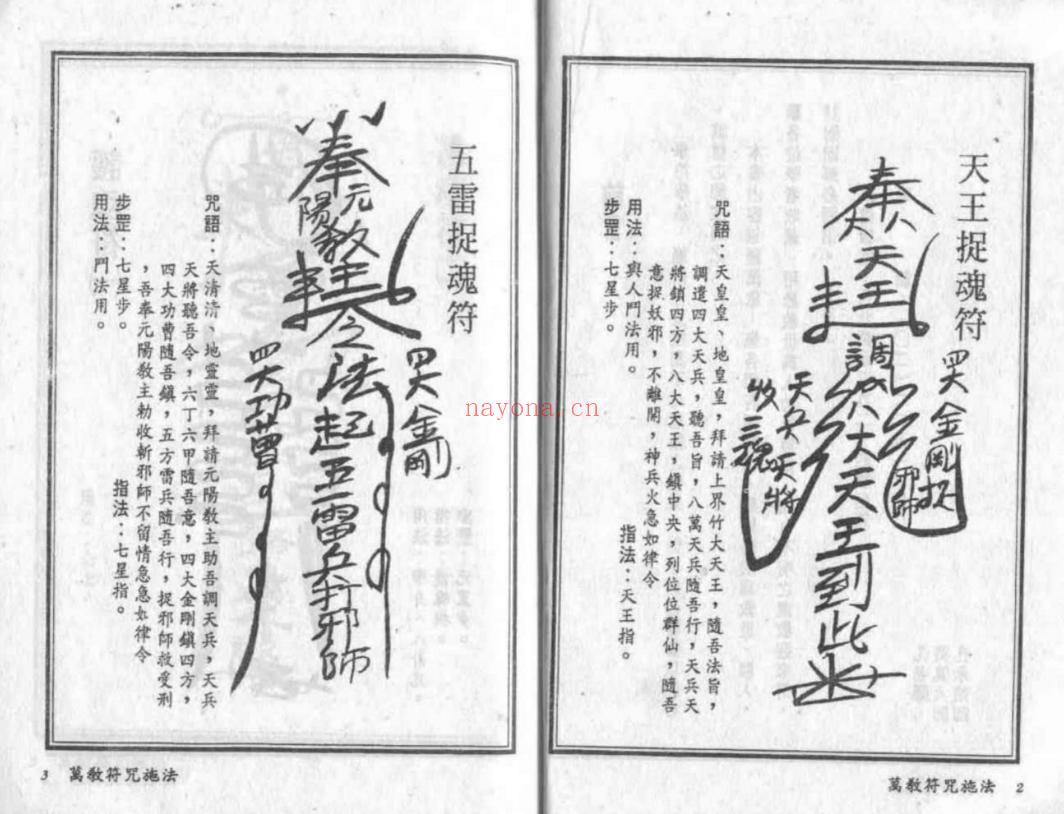 天王捉魂符
四大金剛捉
邪師
奉
天王
調
八大天王到此
天兵天將
收三魂
咒語：天皇皇、地皇皇，拜請上界竹大天王，隨吾法旨，
調遣四大天兵，聽吾旨，八萬天兵隨吾行，天兵天
將鎖四方，八大天王，鎮中央，列位位群仙，隨吾
意捉妖邪，不離開，神兵火急如律令
指法：天王指。
用法：與人鬥法用。
步罡：七星步。
萬教符咒施法 2
五雷捉魂符
四大金剛
奉
元陽教主
令
之法起五雷兵斬邪師
四大功曹
咒語：天清清、地靈靈，拜請元陽教主助吾調天兵，天兵
天將聽吾令，六丁六甲隨吾意，四大金剛鎮四方，
四大功曹隨吾鎮，五方雷兵隨吾行，捉邪師敕受刑
，吾奉元陽教主勅收斬邪師不留情急急如律令
指法：七星指。
步罡：七星步。
用法：鬥法用。
3 萬教符咒施法
nayona.cn